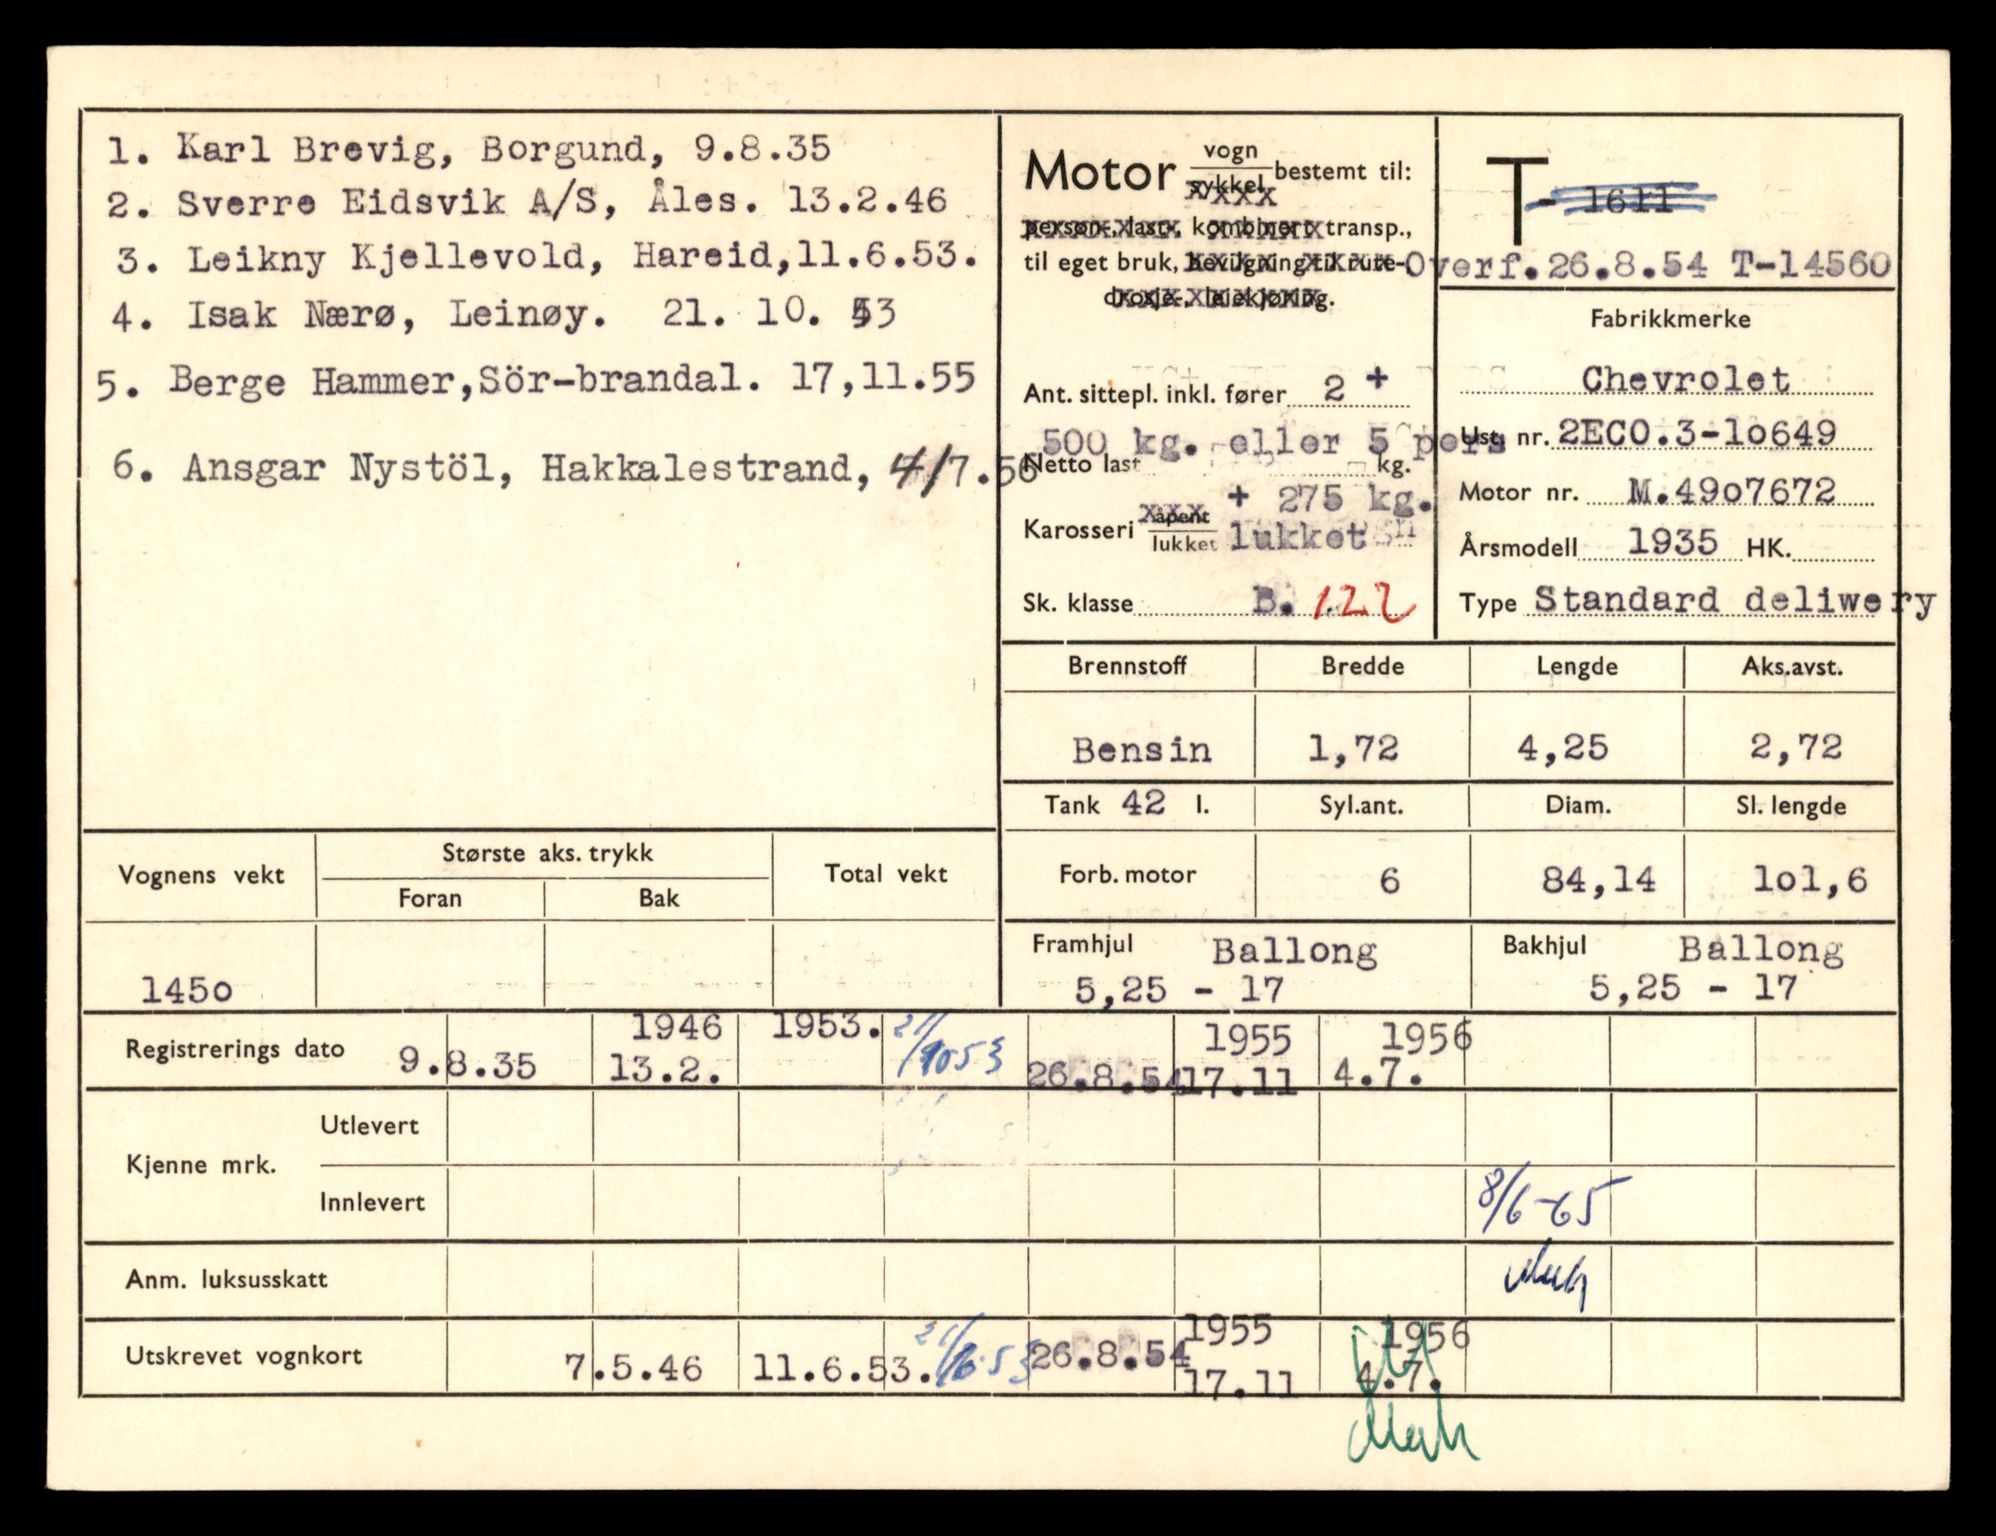 1. Karl Brevig, Borgund, 9.8.35
2. Sverre Eidsvik A/S, Åles. 13.2.46
3. Leikny Kjellevold, Hareid,11.6.53.
4. Isak Nærø, Leinøy. 21. 10. 53
5. Berge Hammer,Sör-brandal. 17,11.55
6. Ansgar Nystöl, Hakkalestrand, 4/7.56
Motor vogn sykkel bestemt til:
person-, last-, kombinert transp.,
til eget bruk, bevilgning til rute-,
drosje-, leiekjøring.
Ant. sittepl. inkl. fører 2 +
500 kg. eller 5 pers
Netto last kg.
+ 275 kg.
Karosseri åpent lukket lukket
Sk. klasse B. 122
T- 1611
Overf.26.8.54 T-14560
Fabrikkmerke
Chevrolet
Ust. nr. 2ECO.3-1o649
Motor nr. M.49o7672
Årsmodell 1935 HK.
Type Standard deliwery
Brennstoff Bredde Lengde Aks.avst.
Bensin 1,72 4,25 2,72
Tank 42 l. Syl.ant. Diam. Sl. lengde
Forb. motor 6 84,14 1o1,6
Framhjul Ballong Bakhjul Ballong
5,25 - 17 5,25 - 17
Vognens vekt Største aks. trykk Total vekt
Foran Bak
145o
Registrerings dato 9.8.35 1946 13.2. 1953. 21/1053 26.8.54 1955 17.11 1956 4.7.
Kjenne mrk. Utlevert
Innlevert 8/6-65
Anm. luksusskatt
Utskrevet vognkort 7.5.46 11.6.53. 26.8.54 1955 17.11 1956 4.7.